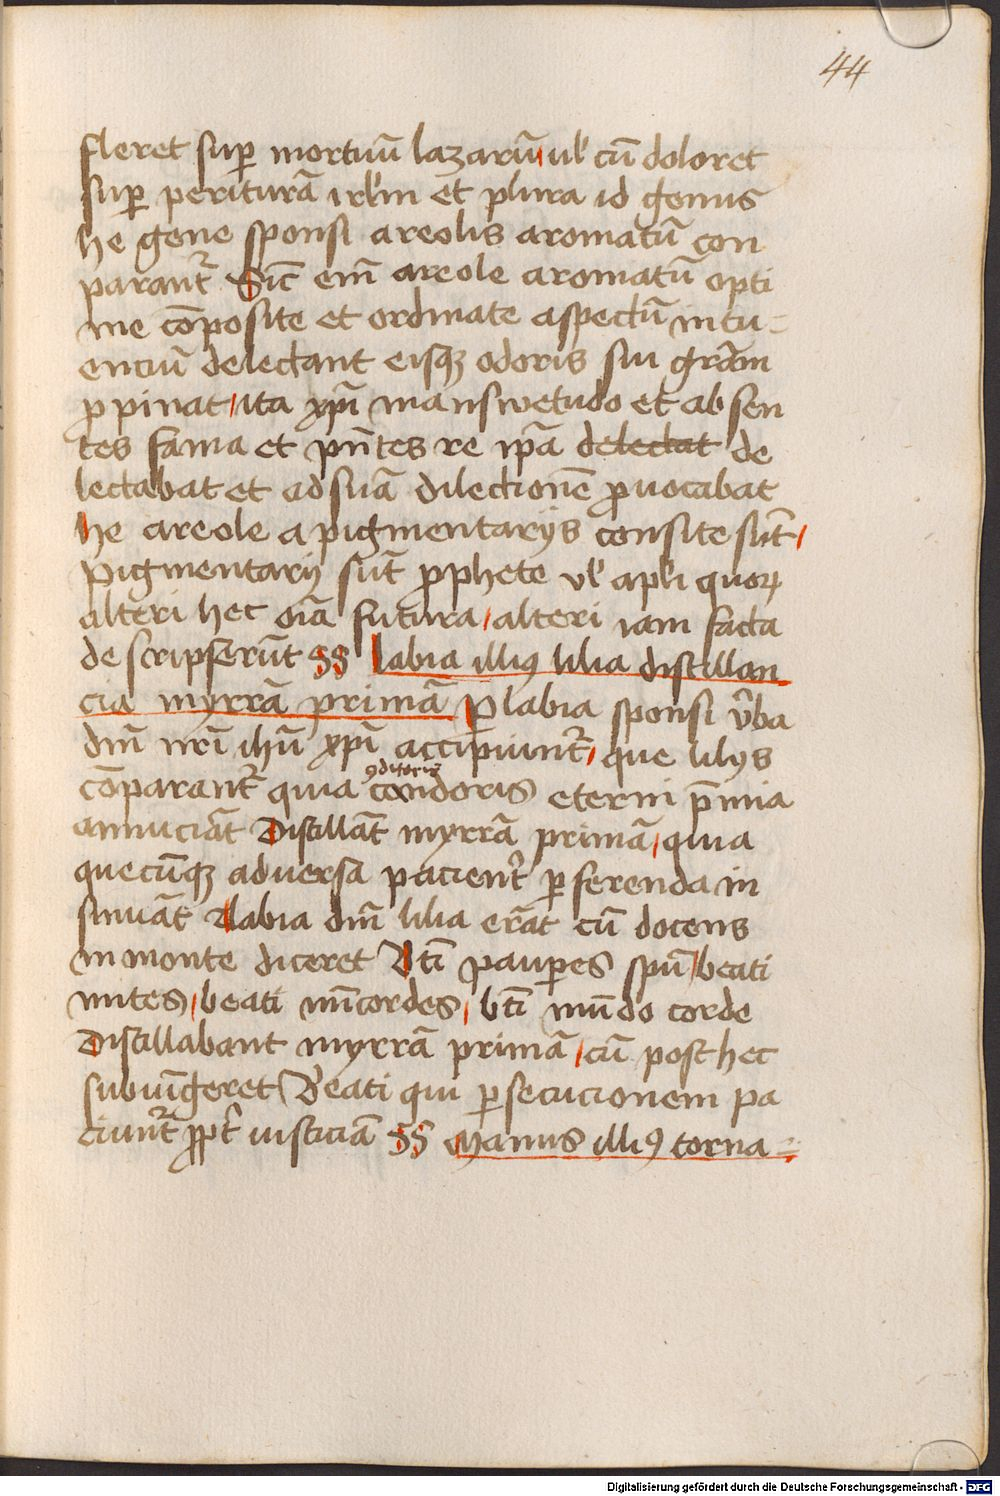 44
fleret sup̲ mortuū lazarū ul̕ cū doloret
sup̲ periturā irl̄m et plura id genus
he gene sponsi areolis aromatū con
parant᷑ Sic̄ em̄ areole aromatū opti
me cōposite et ordinate aspectū intu=
enciū delectant eisqꝫ odoris sui grām
ꝓpinat ita xp̄i manswetudo et absen
tes fama et pn̄tes re ip̄a delectat de
lectabat et ad suā dilectionē ꝓuocabat
he areole a pigmentarijs consite sūt
Pigmentarij sūt ꝓphete vl̕ apl̕i quoꝝ
alteri hec oīa futura alteri iam facta
descripserūt §§ labia illiꝰ lilia distillan
cia myrrā primā P̲ labia sponsi v̄ba
dn̄i nr̄i ihū xp̄i accipiunt᷑ que lilijs
cōparant᷑ quia condoris eterni p̄mia
ꝯditoris
annuciāt Distillāt myrrā primā quia
quecūqꝫ aduersa pacient᷑ ꝑferenda in
sinuāt Labia dn̄i lilia erāt cū docens
in monte diceret Bt̄i pauꝑes spū beati
mites beati mīcordes bt̄i mūdo corde
Distillabant myrrā primā cū post hec
subiūgeret Beati qui ꝑsecucionem pa
ciunt᷑ ꝓpt̄ iusticiā §§ Manus illiꝰ torna=
Digitalisierung gefördert durch die Deutsche Forschungsgemeinschaft - DFG